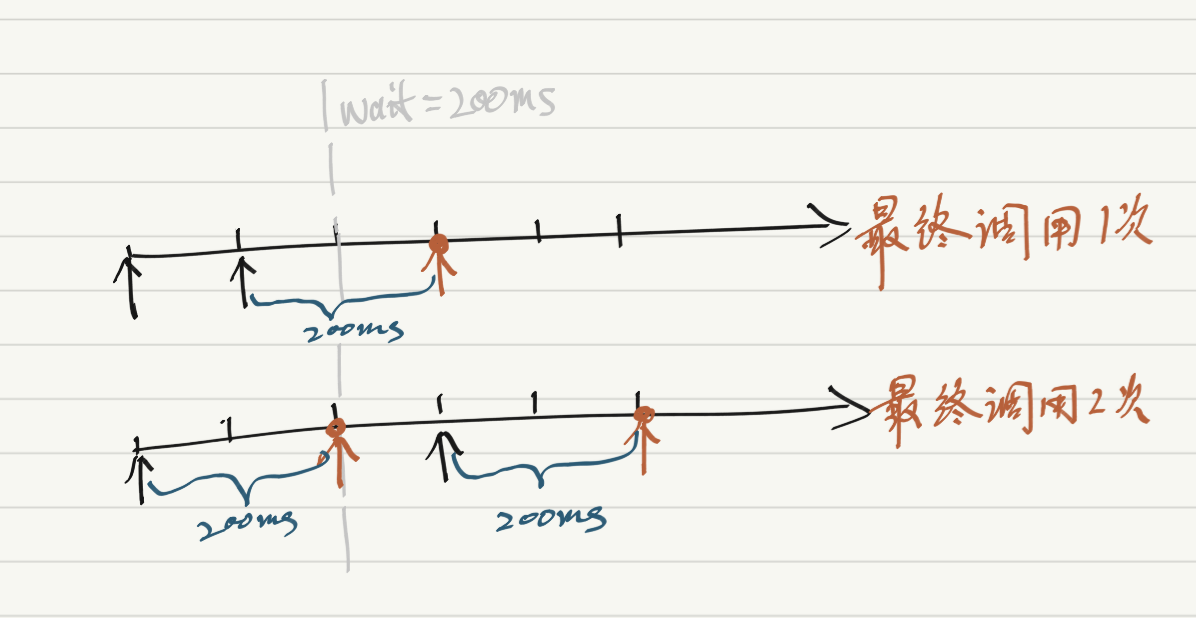 wait=200ms
最终调用1次
200ms
最终调用2次
200ms
200ms